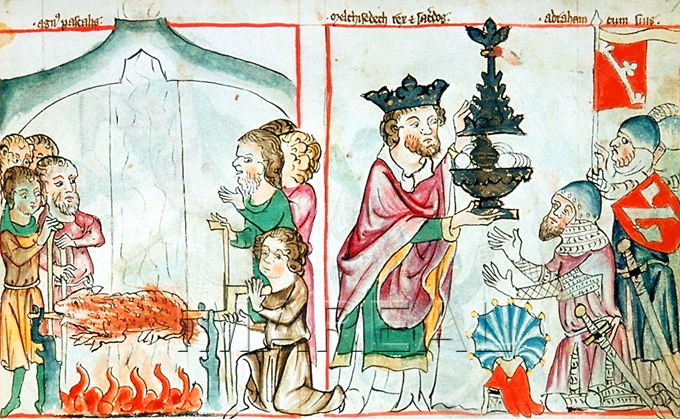 · agnꝰ pascalis ·
· melchisedech rex ⁊ sac̄dos ·
· abraham cum suis ·